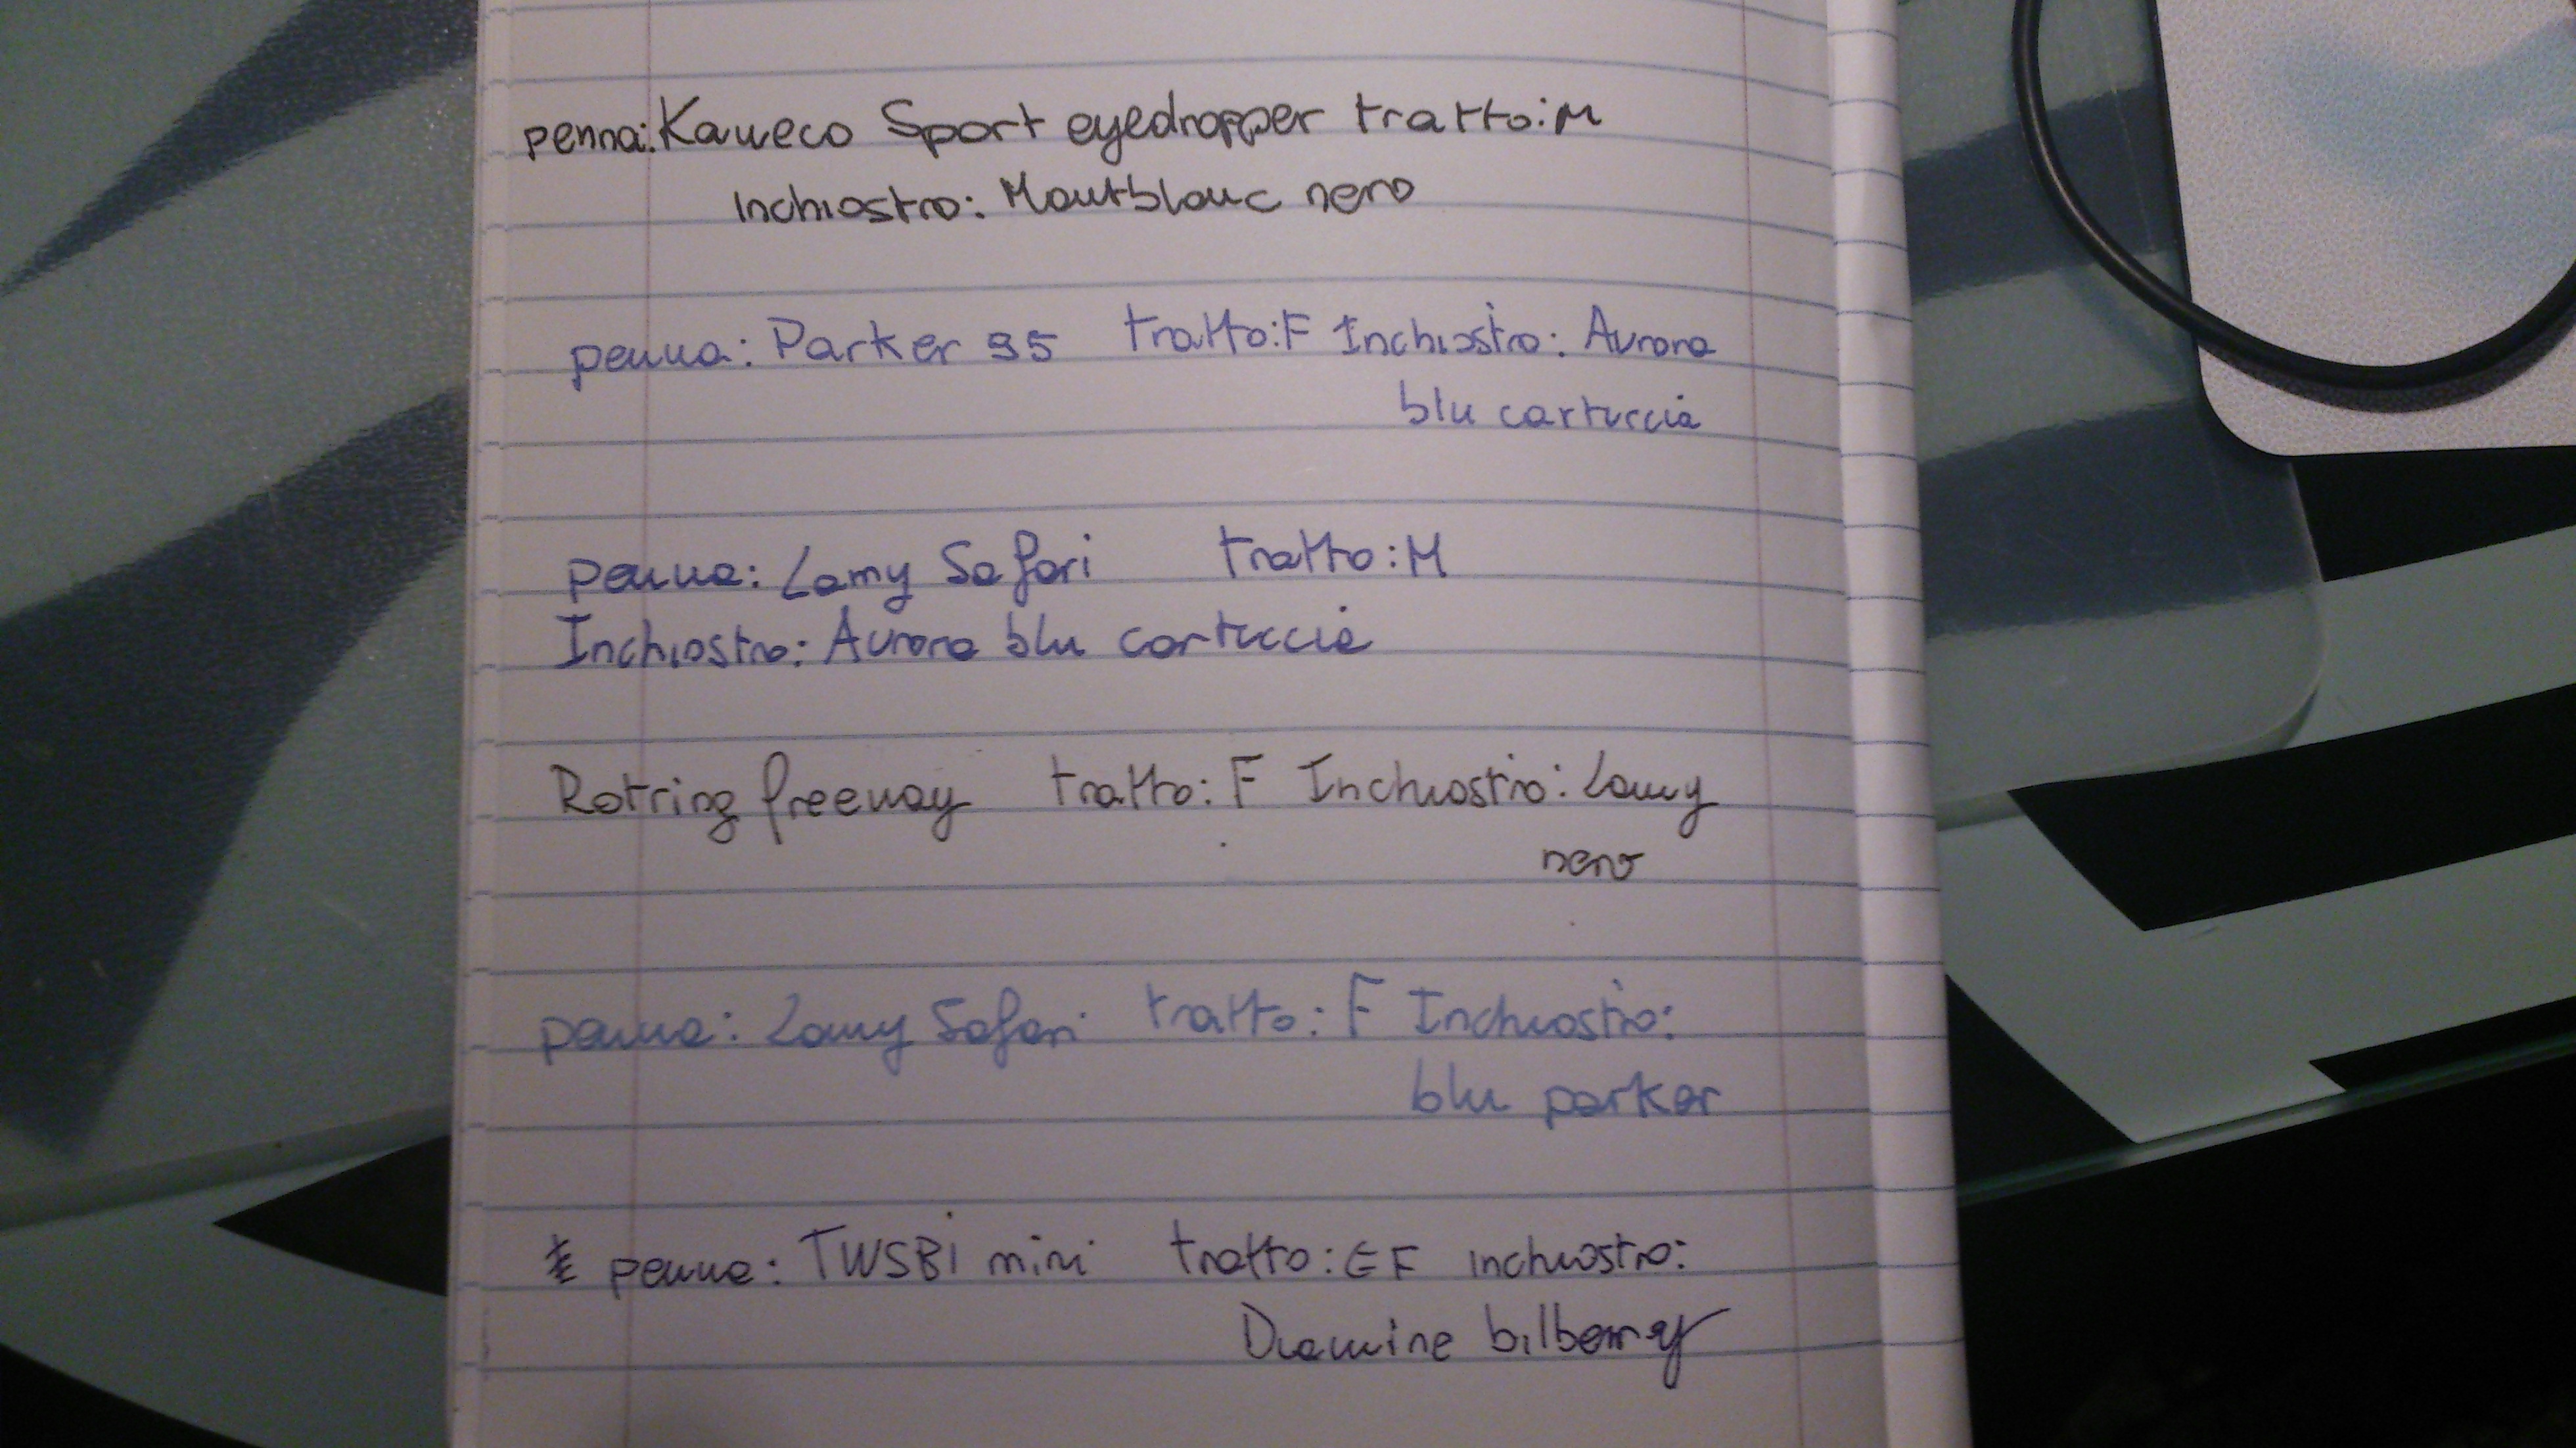 penna: Kaweco Sport eyedropper tratto: M
Inchiostro: Montblanc nero
penna: Parker 95 tratto: F Inchiostro: Aurora
blu cartuccia
penna: Lamy Safari tratto: M
Inchiostro: Aurora blu cartuccia
Rotring freeway tratto: F Inchiostro: Lamy
nero
penna: Lamy Safari tratto: F Inchiostro:
blu parker
penna: TWSBi mini tratto: EF inchiostro:
Diamine bilberry